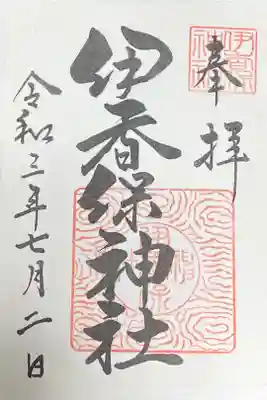 奉拝
伊香保神社
令和三年七月二日